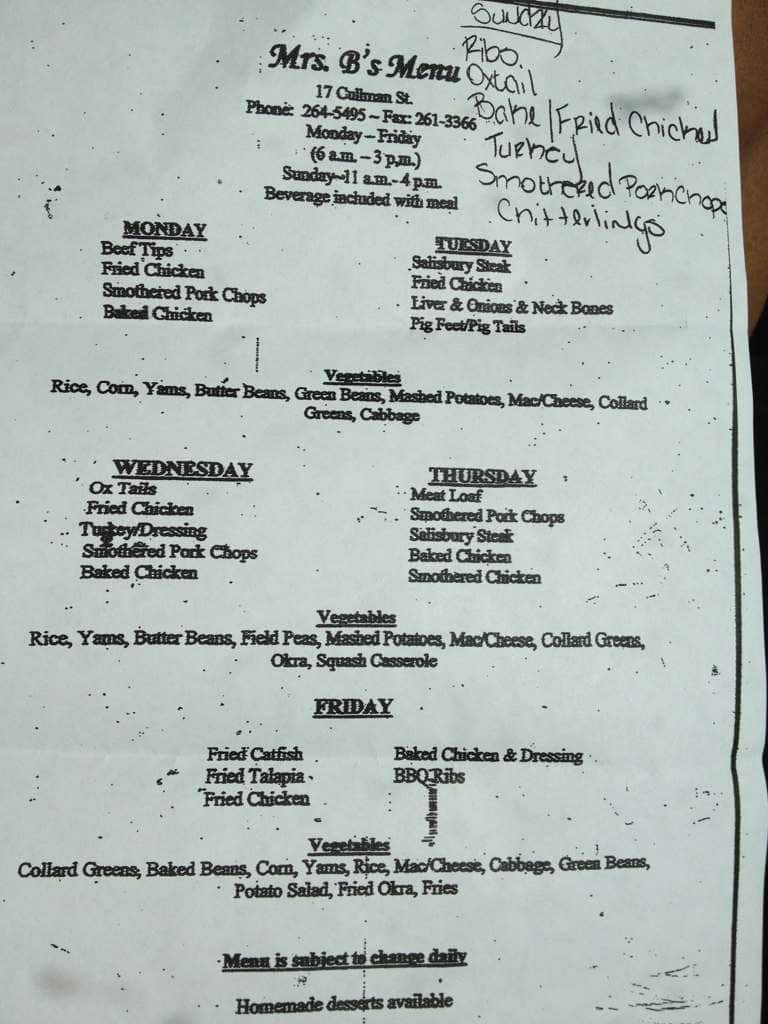 Sunday
Ribs
Oxtail
Bake/Fried Chicken
Turkey
Smothered Porkchops
Chitterlings
Mrs. B's Menu
17 Cullman St.
Phone: 264-5495 ~ Fax: 261-3366
Monday – Friday
(6 a.m. – 3 p.m.)
Sunday~11 a.m.- 4 p.m.
Beverage included with meal
MONDAY
Beef Tips
Fried Chicken
Smothered Pork Chops
Baked Chicken
TUESDAY
Salisbury Steak
Fried Chicken
Liver & Onions & Neck Bones
Pig Feet/Pig Tails
Vegetables
Rice, Corn, Yams, Butter Beans, Green Beans, Mashed Potatoes, Mac/Cheese, Collard
Greens, Cabbage
WEDNESDAY
Ox Tails
Fried Chicken
Turkey/Dressing
Smothered Pork Chops
Baked Chicken
THURSDAY
Meat Loaf
Smothered Pork Chops
Salisbury Steak
Baked Chicken
Smothered Chicken
Vegetables
Rice, Yams, Butter Beans, Field Peas, Mashed Potatoes, Mac/Cheese, Collard Greens,
Okra, Squash Casserole
FRIDAY
Fried Catfish
Fried Talapia
Fried Chicken
Baked Chicken & Dressing
BBQ Ribs
Vegetables
Collard Greens, Baked Beans, Corn, Yams, Rice, Mac/Cheese, Cabbage, Green Beans,
Potato Salad, Fried Okra, Fries
Menu is subject to change daily
Homemade desserts available